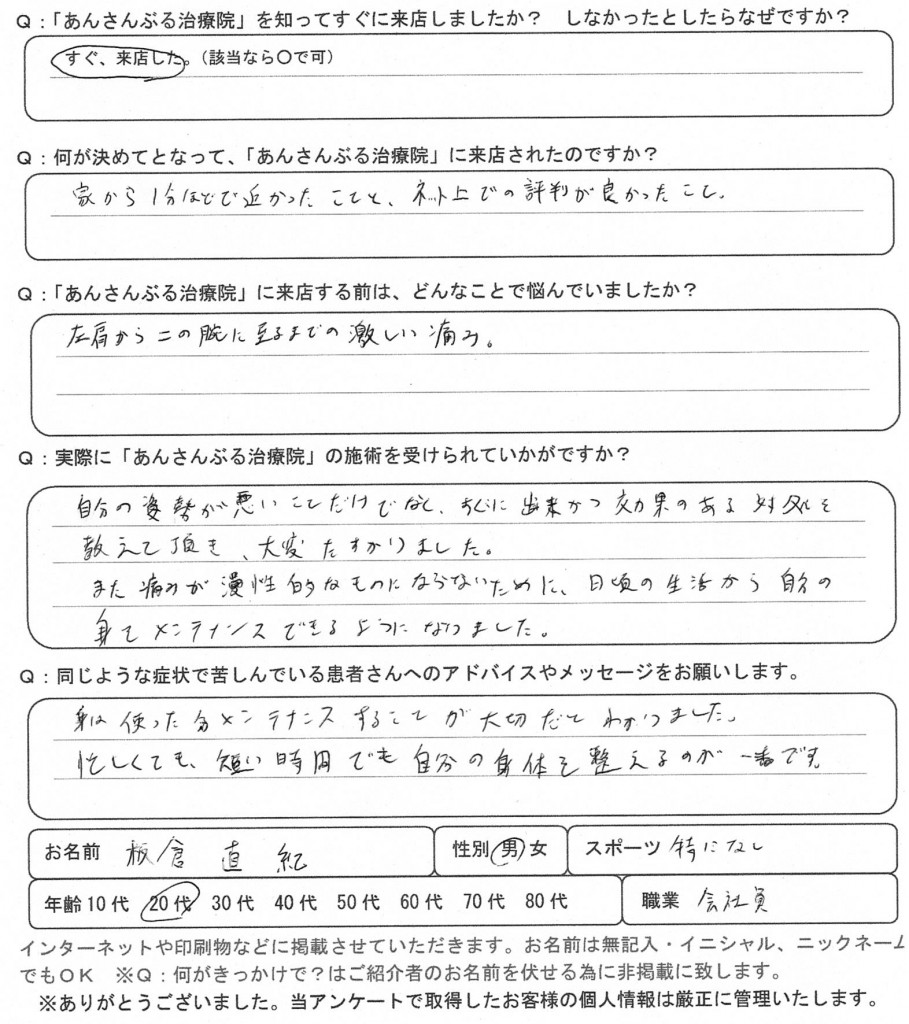 Q：「あんさんぶる治療院」を知ってすぐに来店しましたか？　しなかったとしたらなぜですか？
すぐ、来店した。（該当なら〇で可）
Q：何が決めてとなって、「あんさんぶる治療院」に来店されたのですか？
家から1分ほどで近かったことと、ネット上での評判が良かったこと。
Q：「あんさんぶる治療院」に来店する前は、どんなことで悩んでいましたか？
左肩から二の腕に至るまでの激しい痛み。
Q：実際に「あんさんぶる治療院」の施術を受けられていかがですか？
自分の姿勢が悪いことだけでなく、すぐに出来かつ効果のある対処を
教えて頂き、大変たすかりました。
また痛みが慢性的なものにならないために、日頃の生活から自分の
身でメンテナンスできるようになりました。
Q：同じような症状で苦しんでいる患者さんへのアドバイスやメッセージをお願いします。
身は使った分メンテナンスすることが大切だとわかりました。
忙しくても、短い時間でも自分の身体を整えるのが一番です。
お名前　板倉　直紀　性別 男 女　スポーツ 特になし
年齢 10代　20代　30代　40代　50代　60代　70代　80代　職業　会社員
インターネットや印刷物などに掲載させていただきます。お名前は無記入・イニシャル、ニックネーム
でもOK　※Q：何がきっかけで？はご紹介者のお名前を伏せる為に非掲載に致します。
※ありがとうございました。当アンケートで取得したお客様の個人情報は厳正に管理いたします。